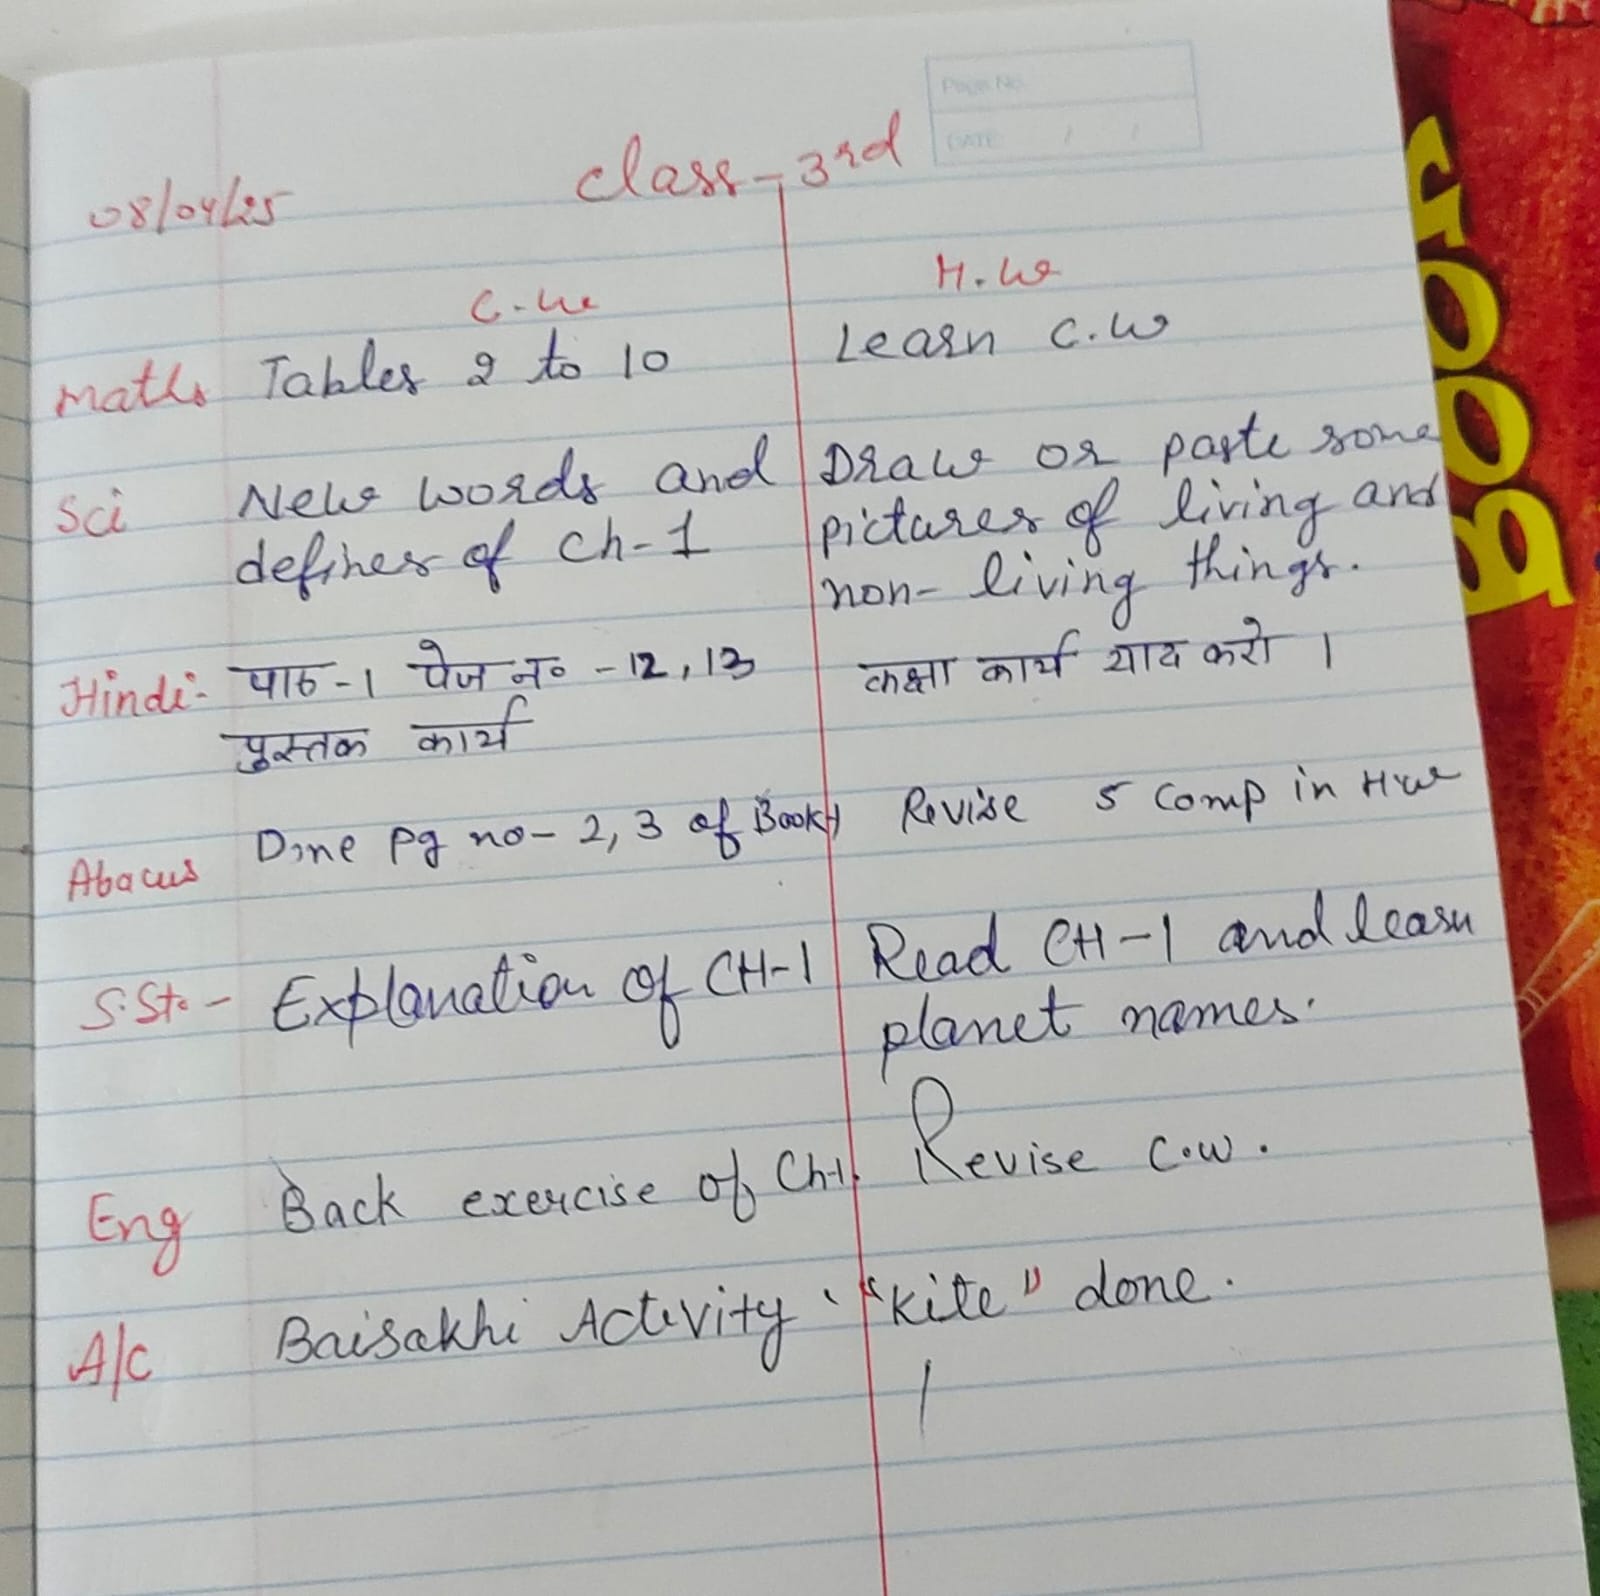 Page No.
DATE / /
class - 3rd
08/04/25
C.W H.W
Maths Tables 2 to 10 Learn C.W
Sci New words and Draw or paste some
defines of Ch-1 pictures of living and
non-living things.
Hindi- पाठ-1 पेज न० -12,13 कक्षा कार्य याद करो ।
पुस्तक कार्य
Abacus Done pg no- 2, 3 of Book Revise 5 Comp in Hw
S.St. - Explanation of CH-1 Read CH-1 and learn
planet names.
Eng Back exercise of Ch-1. Revise C.W.
A/C Baisakhi Activity "Kite" done.